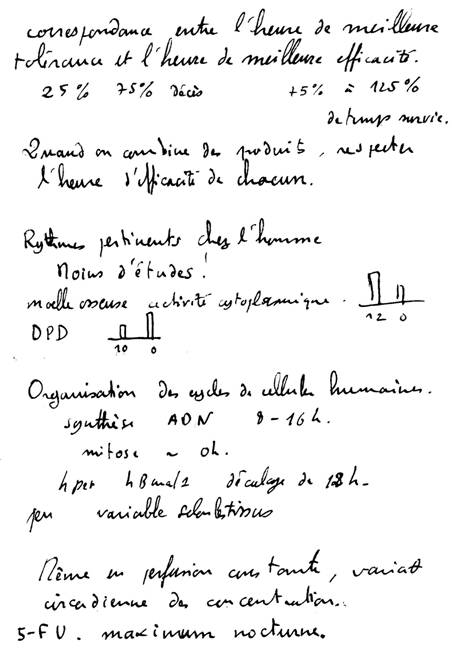 correspondance entre l'heure de meilleure
tolérance et l'heure de meilleure efficacité.
25% 75% décès +5% à 125%
de temps survie.
Quand on combine des produits, respecter
l'heure d'efficacité de chacun.
Rythmes pertinents chez l'homme
Moins d'études!
moelle osseuse activité cytoplasmique. 12 0
DPD 10 0
Organisation des cycles de cellules humaines.
synthèse ADN 8-16h.
mitose ~ 0h.
hper hBmal1 décalage de 12h.
peu variable selon tissus
Même en perfusion constante, variat
circadienne des concentration..
5-FU. maximum nocturne.